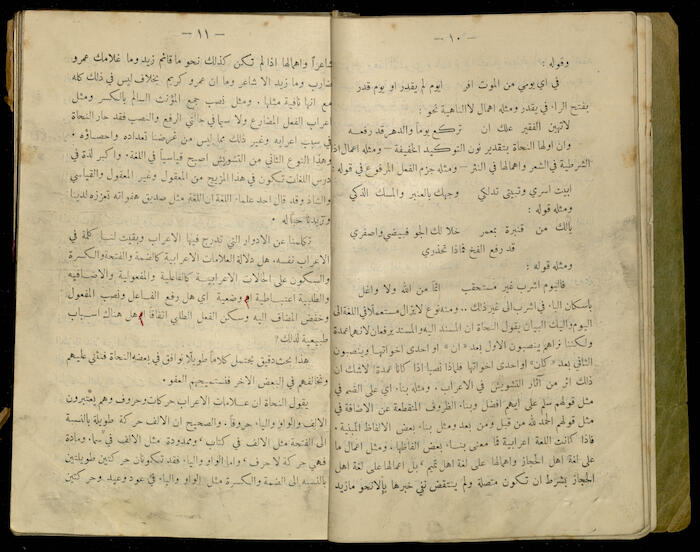 — ١٠ —
وقوله :
في اي يومي من الموت افر ايوم لم يقدر او يوم قدر
بفتح الراء في يقدر ومثله اهمال لا الناهية نحو :
لا تهين الفقير علك ان تركع يوماً والدهر قد رفعه
وان اولها النحاة بتقدير نون التوكيد الخفيفة – ومثله اعمال اذا
الشرطية في الشعر واهمالها في النثر – ومثله جزم الفعل المرفوع في قوله :
ابيت اسري وتبيتي تدلكي وجهك بالعنبر والمسك الذكي
ومثله قوله :
يالك من قنبرة بمعمر خلا لك الجو فبيضي واصفري
قد رفع الفخ فماذا تحذري
ومثله قوله :
فاليوم اشرب غير مستحقب إثماً من الله ولا واغل
باسكان الباء في اشرب الى غير ذلك .. ومنه نوع لا نزال مستعملاً في اللغة الى
اليوم واليك البيان يقول النحاة ان المسند اليه والمسند يرفعان لانهما عمدة
ولكننا نراهم ينصبون الاول بعد « ان » او احدى اخواتها وينصبون
الثاني بعد « كان » او احدى اخواتها فلماذا نصبا اذا كانا عمدة لا شك ان
ذلك اثر من آثار التشويش في الاعراب . ومثله بناء اي على الضم في
مثل قولهم سلم على ايهم افضل وبناء الظروف المنقطعة عن الاضافة في
مثل قولهم الحمد لله من قبل ومن بعد ومثل بناء بعض الالفاظ المبنية .
فاذا كانت اللغة اعرابية فما معنى بناء بعض الفاظها . ومثل اعمال ما
على لغة اهل الحجاز واهمالها على لغة اهل تميم ، بل اعمالها على لغة اهل
الحجاز بشرط ان تكون متصلة ولم ينتقض نفي خبرها بإلا نحو ما زيد
— ١١ —
شاعراً واهمالها اذا لم تكن كذلك نحو ما قائم زيد وما غلامك عمرو
ضارب وما زيد الا شاعر وما ان عمرو كريم بخلاف ليس في ذلك كله
مع انها نافية مثلها . ومثل نصب جمع المؤنث السالم بالكسر ومثل
اعراب الفعل المضارع ولا سيما في حالتي الرفع والنصب فقد حار النحاة
في سبب اعرابه وغير ذلك مما ليس من غرضنا تعداده واحصاؤه .
وهذا النوع الثاني من التشويش اصبح قياسياً في اللغة . واكبر لذة في
درس اللغات تكون في هذا المزيج من المعقول وغير المعقول والقياسي
والشاذ وقد قال احد علماء اللغة ان اللغة مثل صديق هفواته تعززه لدينا
وتزيدنا حباً له .
تكلمنا عن الادوار التي تدرج فيها الاعراب وبقيت لنا كلمة في
الاعراب نفسه . هل دلالة العلامات الاعرابية كالضمة والفتحة والكسرة
والسكون على الحالات الاعرابية كالفاعلية والمفعولية والاضافيه
والطلبية اعتباطية ام وضعية اي هل رفع الفاعل ونصب المفعول
وخفض المضاف اليه وسكن الفعل الطلبي اتفاقاً ام هل هناك اسباب
طبيعية لذلك؟
هذا بحث دقيق يحتمل كلاماً طويلاً نوافق في بعضه النحاة فنثني عليهم
ونخالفهم في البعض الآخر فنستميحهم العفو .
يقول النحاة ان علامات الاعراب حركات وحروف وهم يعتبرون
الالف والواو والياء حروفاً . والصحيح ان الالف حركة طويلة بالنسبة
الى الفتحة مثل الالف في كتاب ، وممدودة مثل الالف في سماء ومادة
فهي حركة لا حرف ، واما الواو والياء فقد تكونان حركتين طويلتين
بالنسبه الى الضمة والكسرة مثل الواو والياء في عود وعيد وحركتين